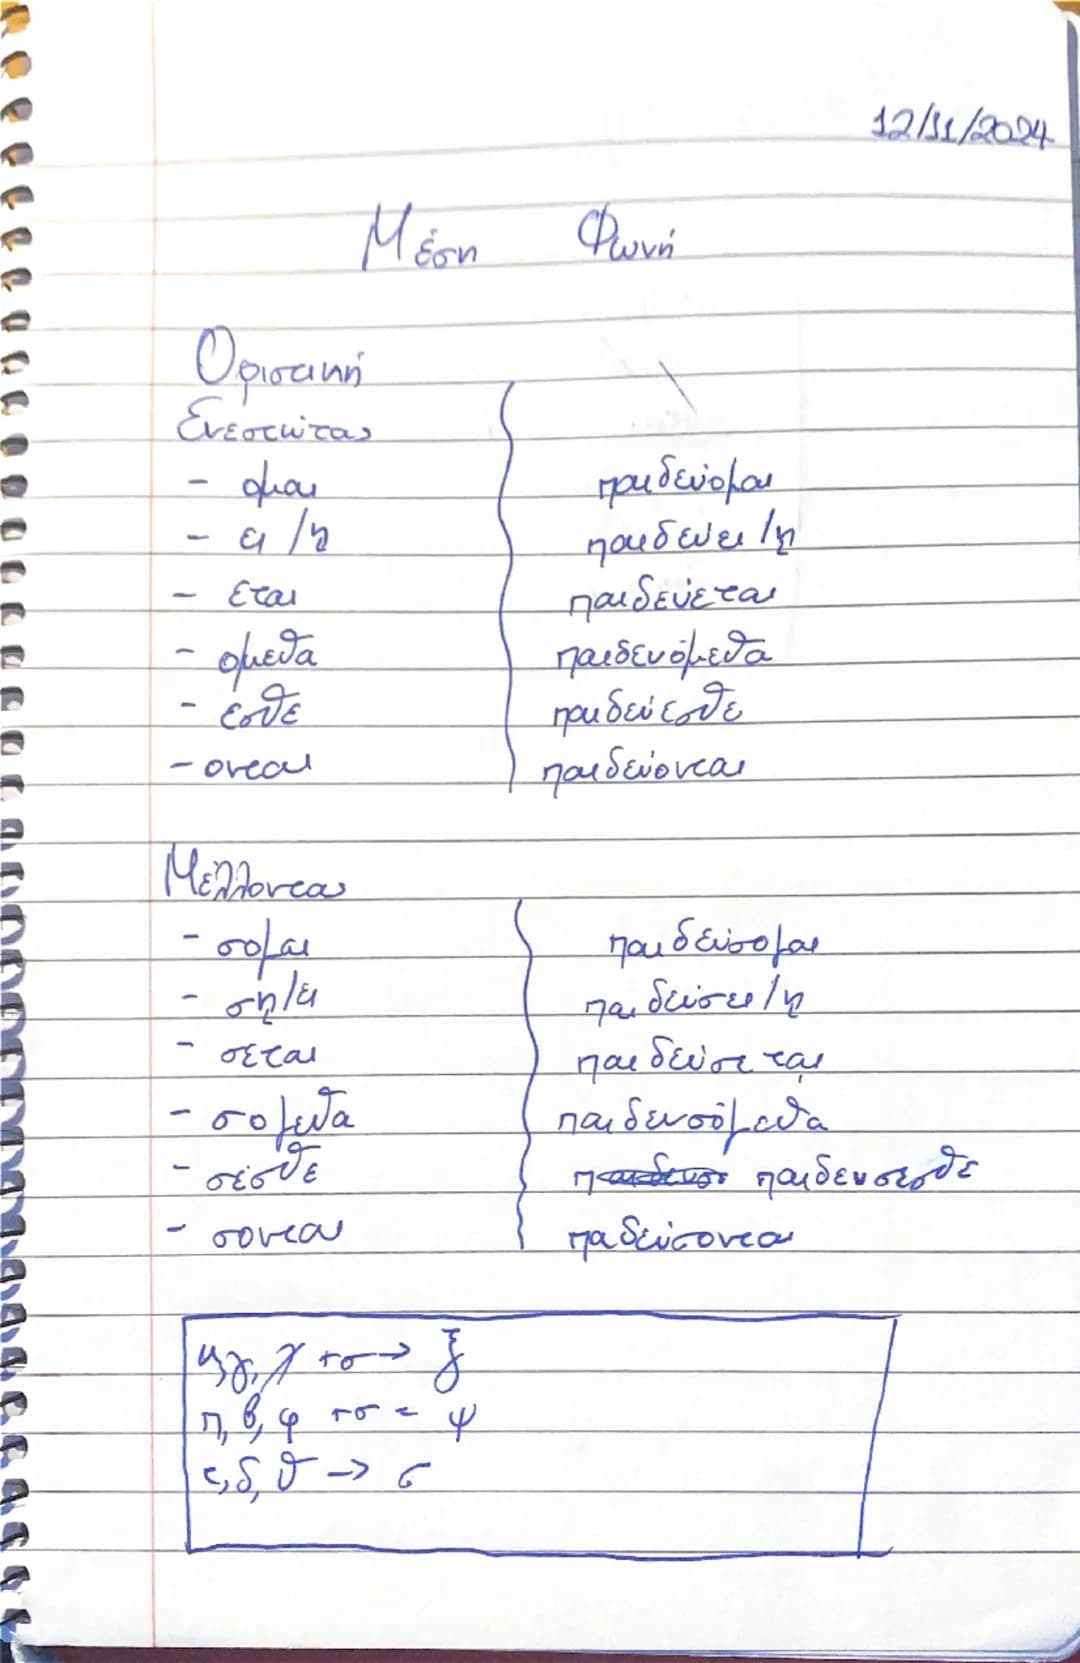 12/11/2024
Μέση Φωνή
Οριστική
Ενεστώτας
- ομαι παιδεύομαι
- ει /ῃ παιδεύει /ῃ
- εται παιδεύεται
- ομεθα παιδευόμεθα
- εσθε παιδεύεσθε
- ονται παιδεύονται
Μέλλοντας
- σομαι παιδεύσομαι
- σῃ/ει παιδεύσει /ῃ
- σεται παιδεύσεται
- σομεθα παιδευσόμεθα
- σεσθε παιδευσεσθε
- σονται παδεύσονται
κ, γ, χ + σ → ξ
π, β, φ + σ = ψ
τ, δ, θ → σ